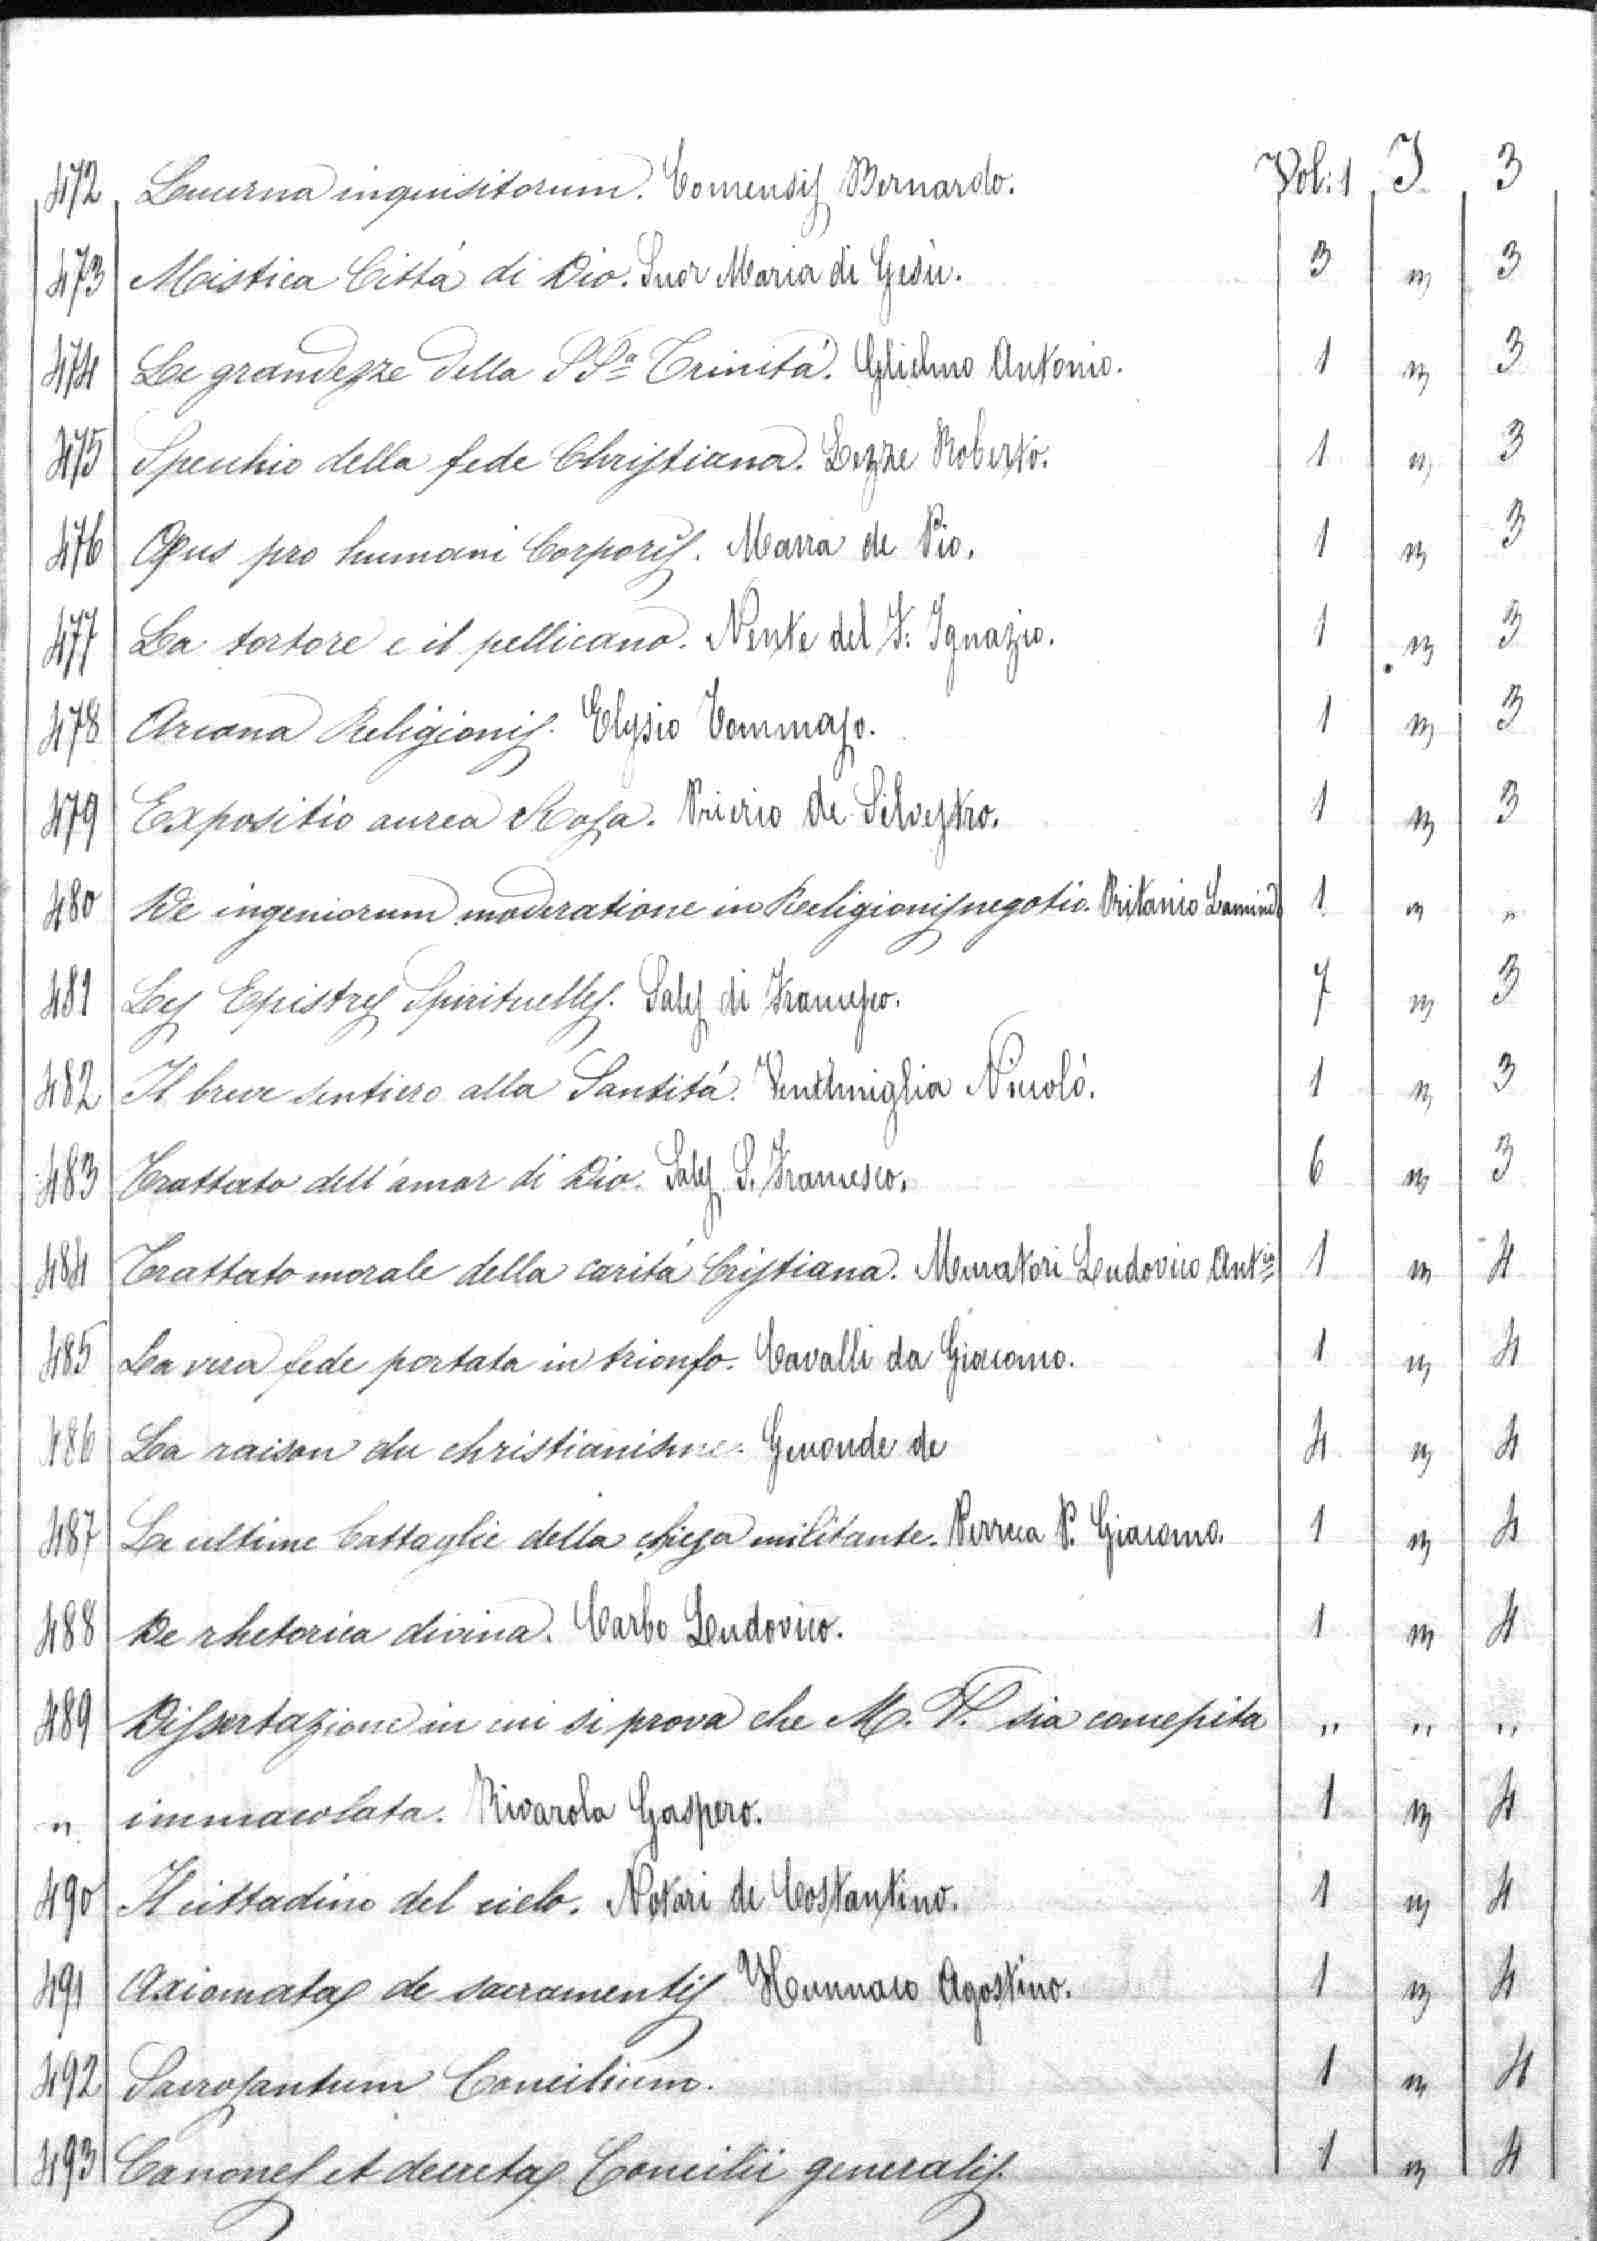 472 Lucerna inquisitorum. Comensis Bernardo. Vol: 1 I 3
473 Mistica Cittá di Dio. Suor Maria di Gesù. 3 " 3
474 Le grandezze della SSª Trinitá. Glielmo Antonio. 1 " 3
475 Specchio della fede Christiana. Lezze Roberto. 1 " 3
476 Opus pro humani Corporis. Massa de Pio. 1 " 3
477 La tortore e il pellicano. Nente del F. Ignazio. 1 " 3
478 Arcana Religionis. Elysio Tommaso. 1 " 3
479 Expositio aurea Rosa. Prierio de Silvestro. 1 " 3
480 De ingeniorum moderatione in Religionis negotio. Pritanio Lamindo 1 " "
481 Les Epistres Spirituelles. Sales di Francesco. 7 " 3
482 Il breve sentiero alla Santitá. Ventimiglia Nicoló. 1 " 3
483 Trattato dell'amor di Dio. Sales S. Francesco. 6 " 3
484 Trattato morale della caritá Cristiana. Muratori Ludovico Antio 1 " 4
485 La vera fede portata in trionfo. Cavalli da Giacomo. 1 " 4
486 La raison du christianisme. Genoude de 4 " 4
487 Le ultime battaglie della chiesa militante. Perreca P. Giacomo. 1 " 4
488 De rhetorica divina. Carbo Ludovico. 1 " 4
489 Dissertazione in cui si prova che M. V. sia concepita " " "
" immacolata. Rivarola Gaspero. 1 " 4
490 Il cittadino del cielo. Notari de Costantino. 1 " 4
491 Axiomatas de sacramentis Agostino. 1 " 4
492 Sacrosantum Concilium. 1 " 4
493 Canones et decretas Concilii generalis. 1 " 4